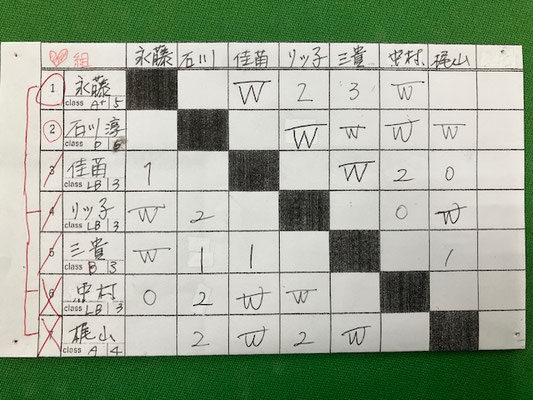 組 永藤 石川 佳苗 リッ子 三貴 中村 梶山
1 永藤 W 2 3 W
class A 5
2 石川淳 W W W W
class D 5
3 佳苗 1 W 2 0
class LB 3
4 リッ子 W 2 0 W
class LB 3
5 三貴 W 1 1 1
class B 3
6 中村 0 2 W W
class LB 3
7 梶山 2 W 2 W
class A 4